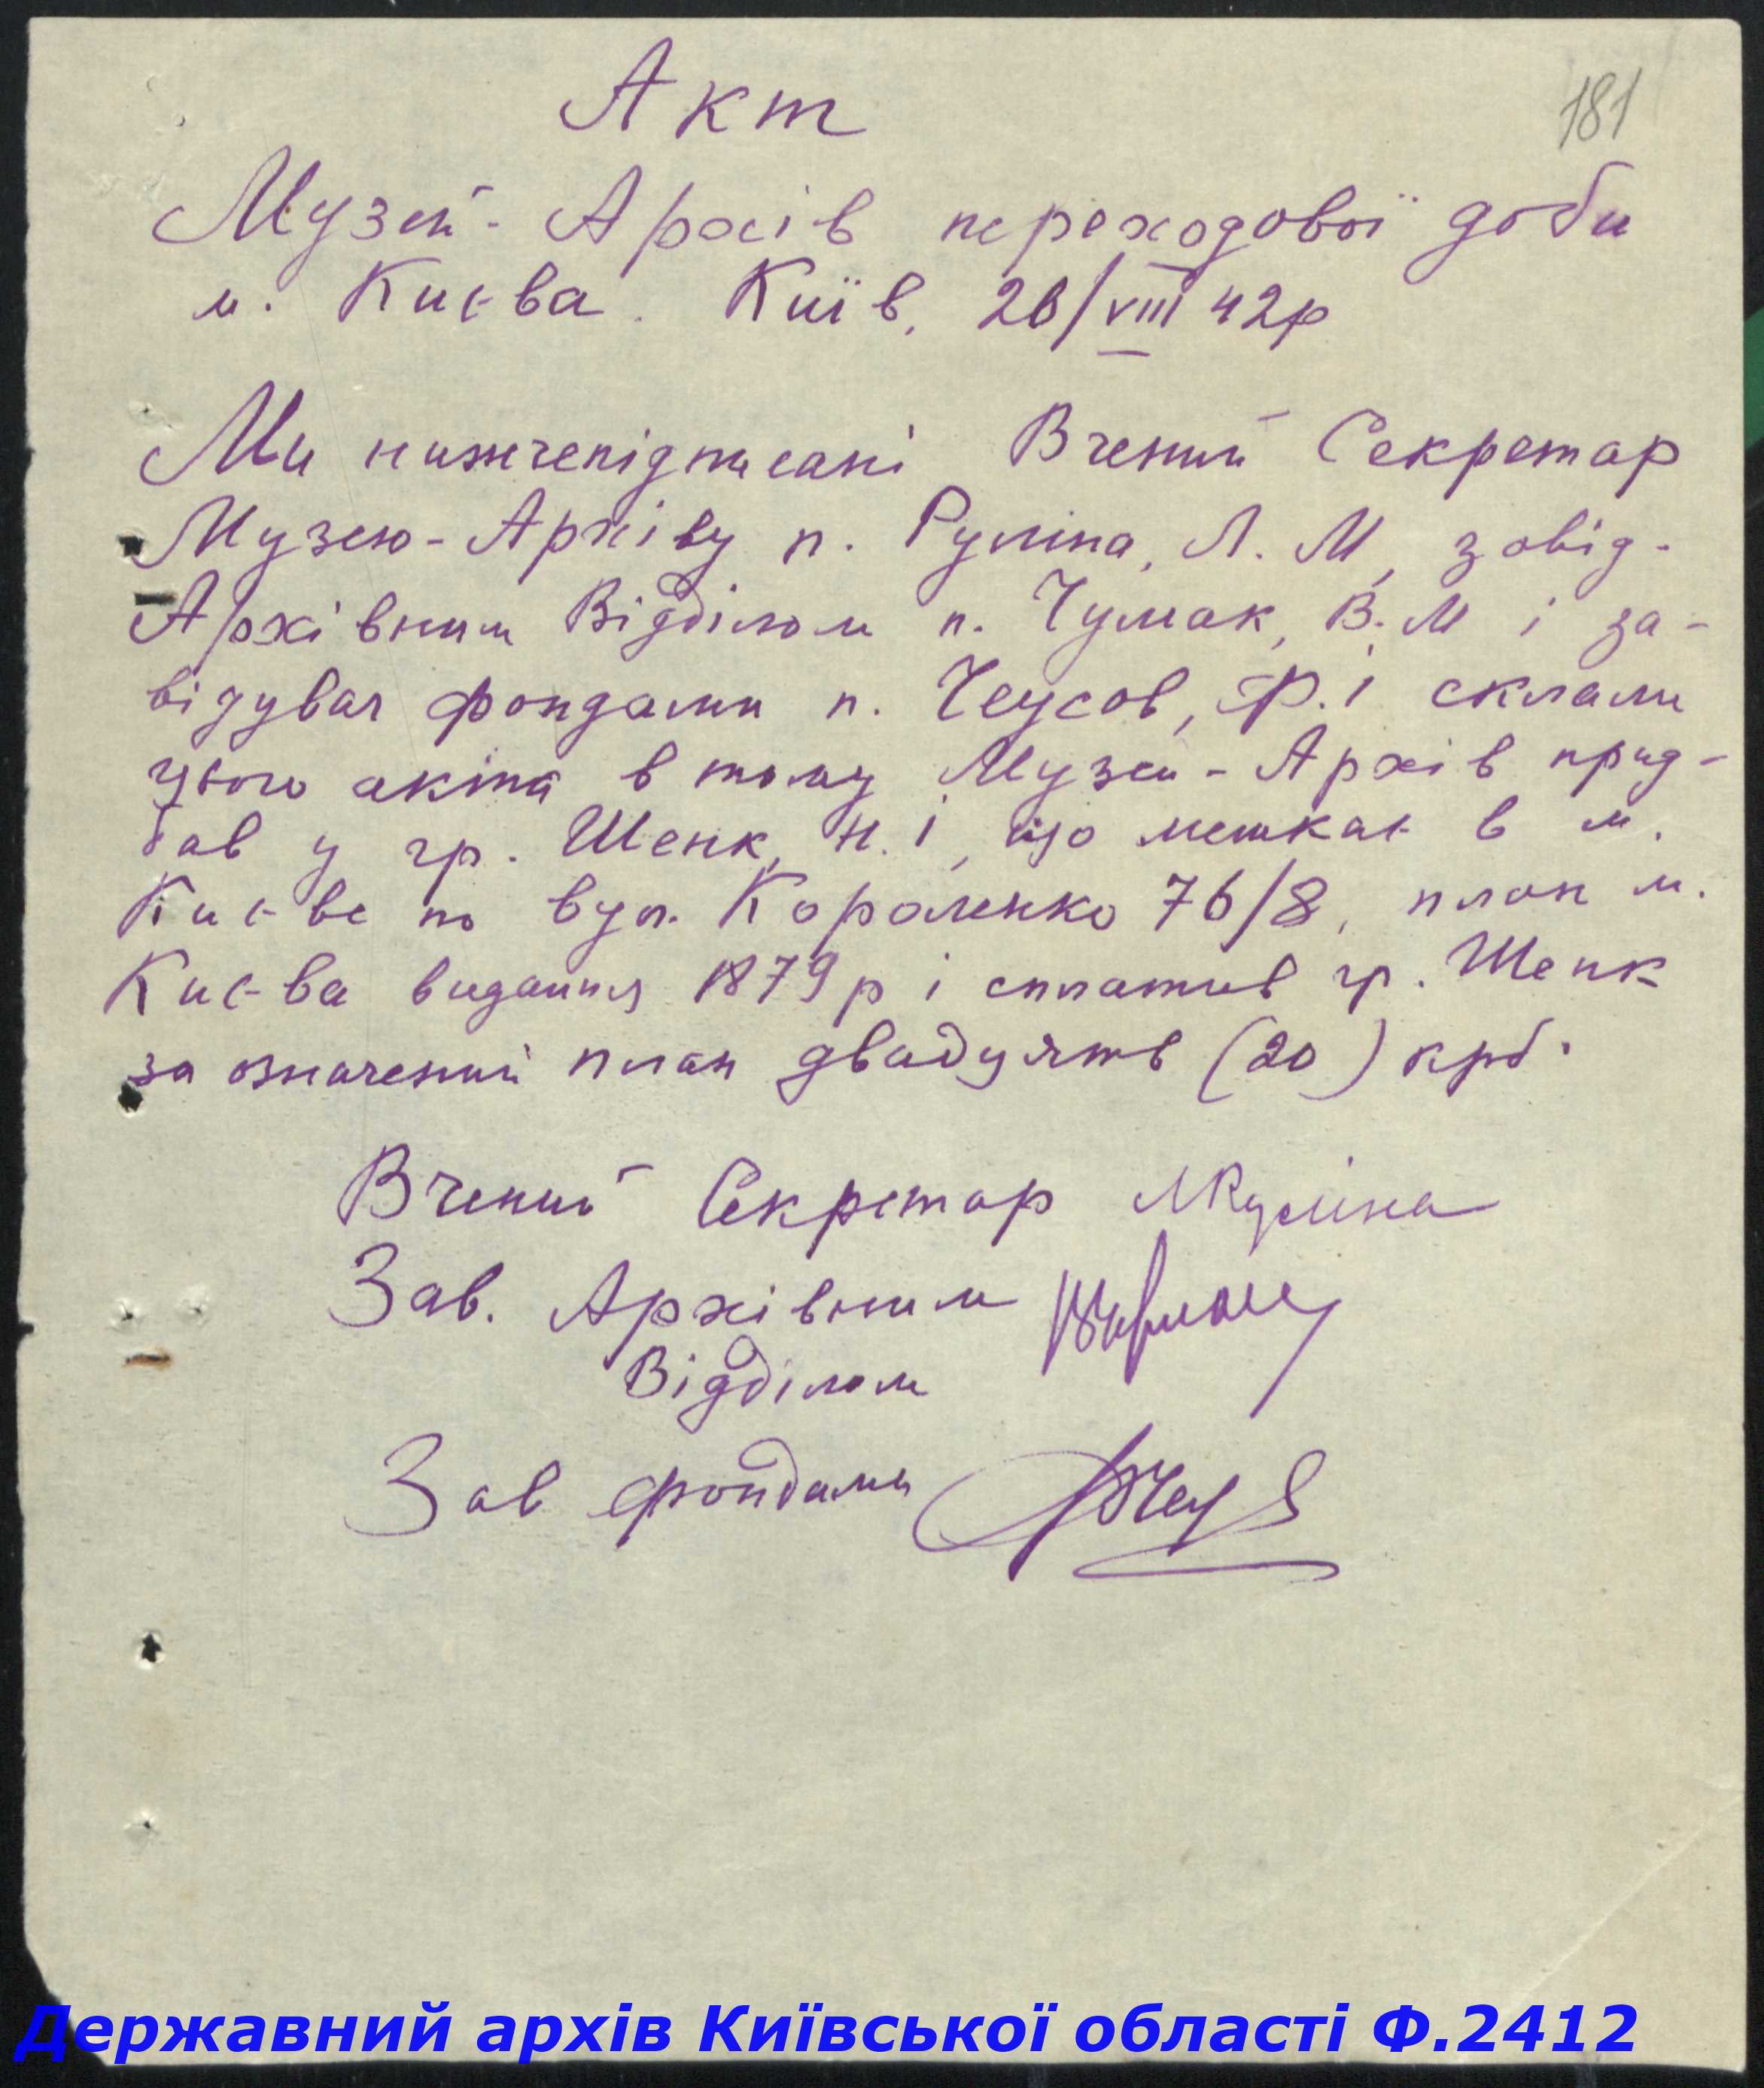 181
Акт
Музей-Архів переходової доби
м. Києва. Київ, 26/VIII 42р
Ми нижчепідписані Вчений Секретар
Музею-Архіву п. Руліна, Л. М, завід-
Архівним Відділом п. Чумак, В. М і за-
відувач фондами п. Чеусов, Ф. І склали
цього акта в тому Музей-Архів прид-
бав у гр. Шенк, Н. І, що мешкає в м.
Києве по вул. Короленко 76/8, план м.
Києва видання 1879 р і сплатив гр. Шенк
за означений план двадцять (20) крб.
Вчений Секретар ЛРуліна
Зав. Архівним
Відділом
Зав фондами
Державний архів Київської області Ф.2412